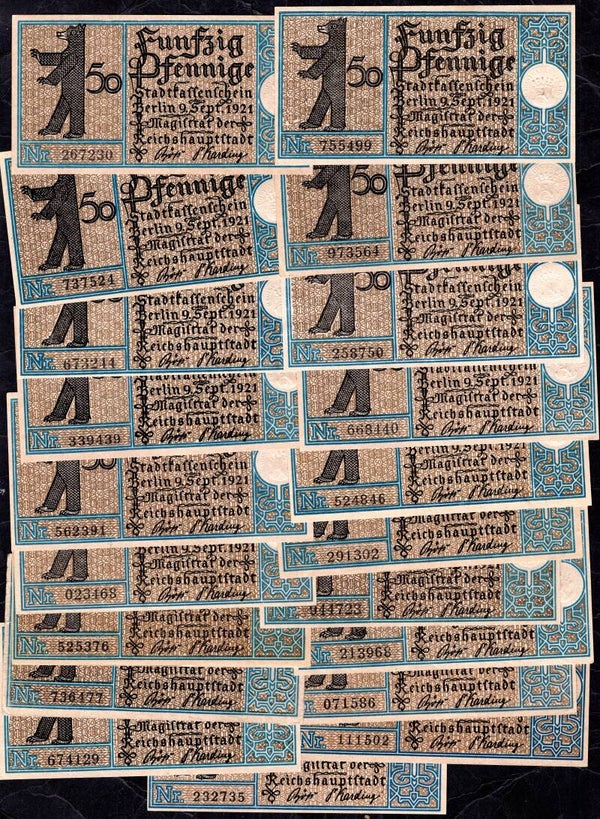 Funfzig
Pfennige
50
Stadtkassenschein
Berlin 9. Sept. 1921
Magistrat der
Reichshauptstadt
Nr. 267230
Funfzig
Pfennige
50
Stadtkassenschein
Berlin 9. Sept. 1921
Magistrat der
Reichshauptstadt
Nr. 755499
Pfennige
50
Stadtkassenschein
Berlin 9. Sept. 1921
Magistrat der
Reichshauptstadt
Nr. 737524
Pfennige
50
Stadtkassenschein
Berlin 9. Sept. 1921
Magistrat der
Reichshauptstadt
Nr. 973564
Stadtkassenschein
Berlin 9. Sept. 1921
Magistrat der
Reichshauptstadt
Nr. 673211
Pfennige
50
Stadtkassenschein
Berlin 9. Sept. 1921
Magistrat der
Reichshauptstadt
Nr. 258750
Stadtkassenschein
Berlin 9. Sept. 1921
Magistrat der
Reichshauptstadt
Nr. 339439
Stadtkassenschein
Berlin 9. Sept. 1921
Magistrat der
Reichshauptstadt
Nr. 668140
50
Stadtkassenschein
Berlin 9. Sept. 1921
Magistrat der
Reichshauptstadt
Nr. 562391
Berlin 9. Sept. 1921
Magistrat der
Reichshauptstadt
Nr. 524846
Berlin 9. Sept. 1921
Magistrat der
Reichshauptstadt
Nr. 023468
Magistrat der
Reichshauptstadt
Nr. 291302
Magistrat der
Reichshauptstadt
Nr. 525376
Magistrat der
Reichshauptstadt
Nr. 944723
Magistrat der
Reichshauptstadt
Nr. 736477
Reichshauptstadt
Nr. 213968
Magistrat der
Reichshauptstadt
Nr. 674129
Magistrat der
Reichshauptstadt
Nr. 071586
Magistrat der
Reichshauptstadt
Nr. 111502
Magistrat der
Reichshauptstadt
Nr. 232735